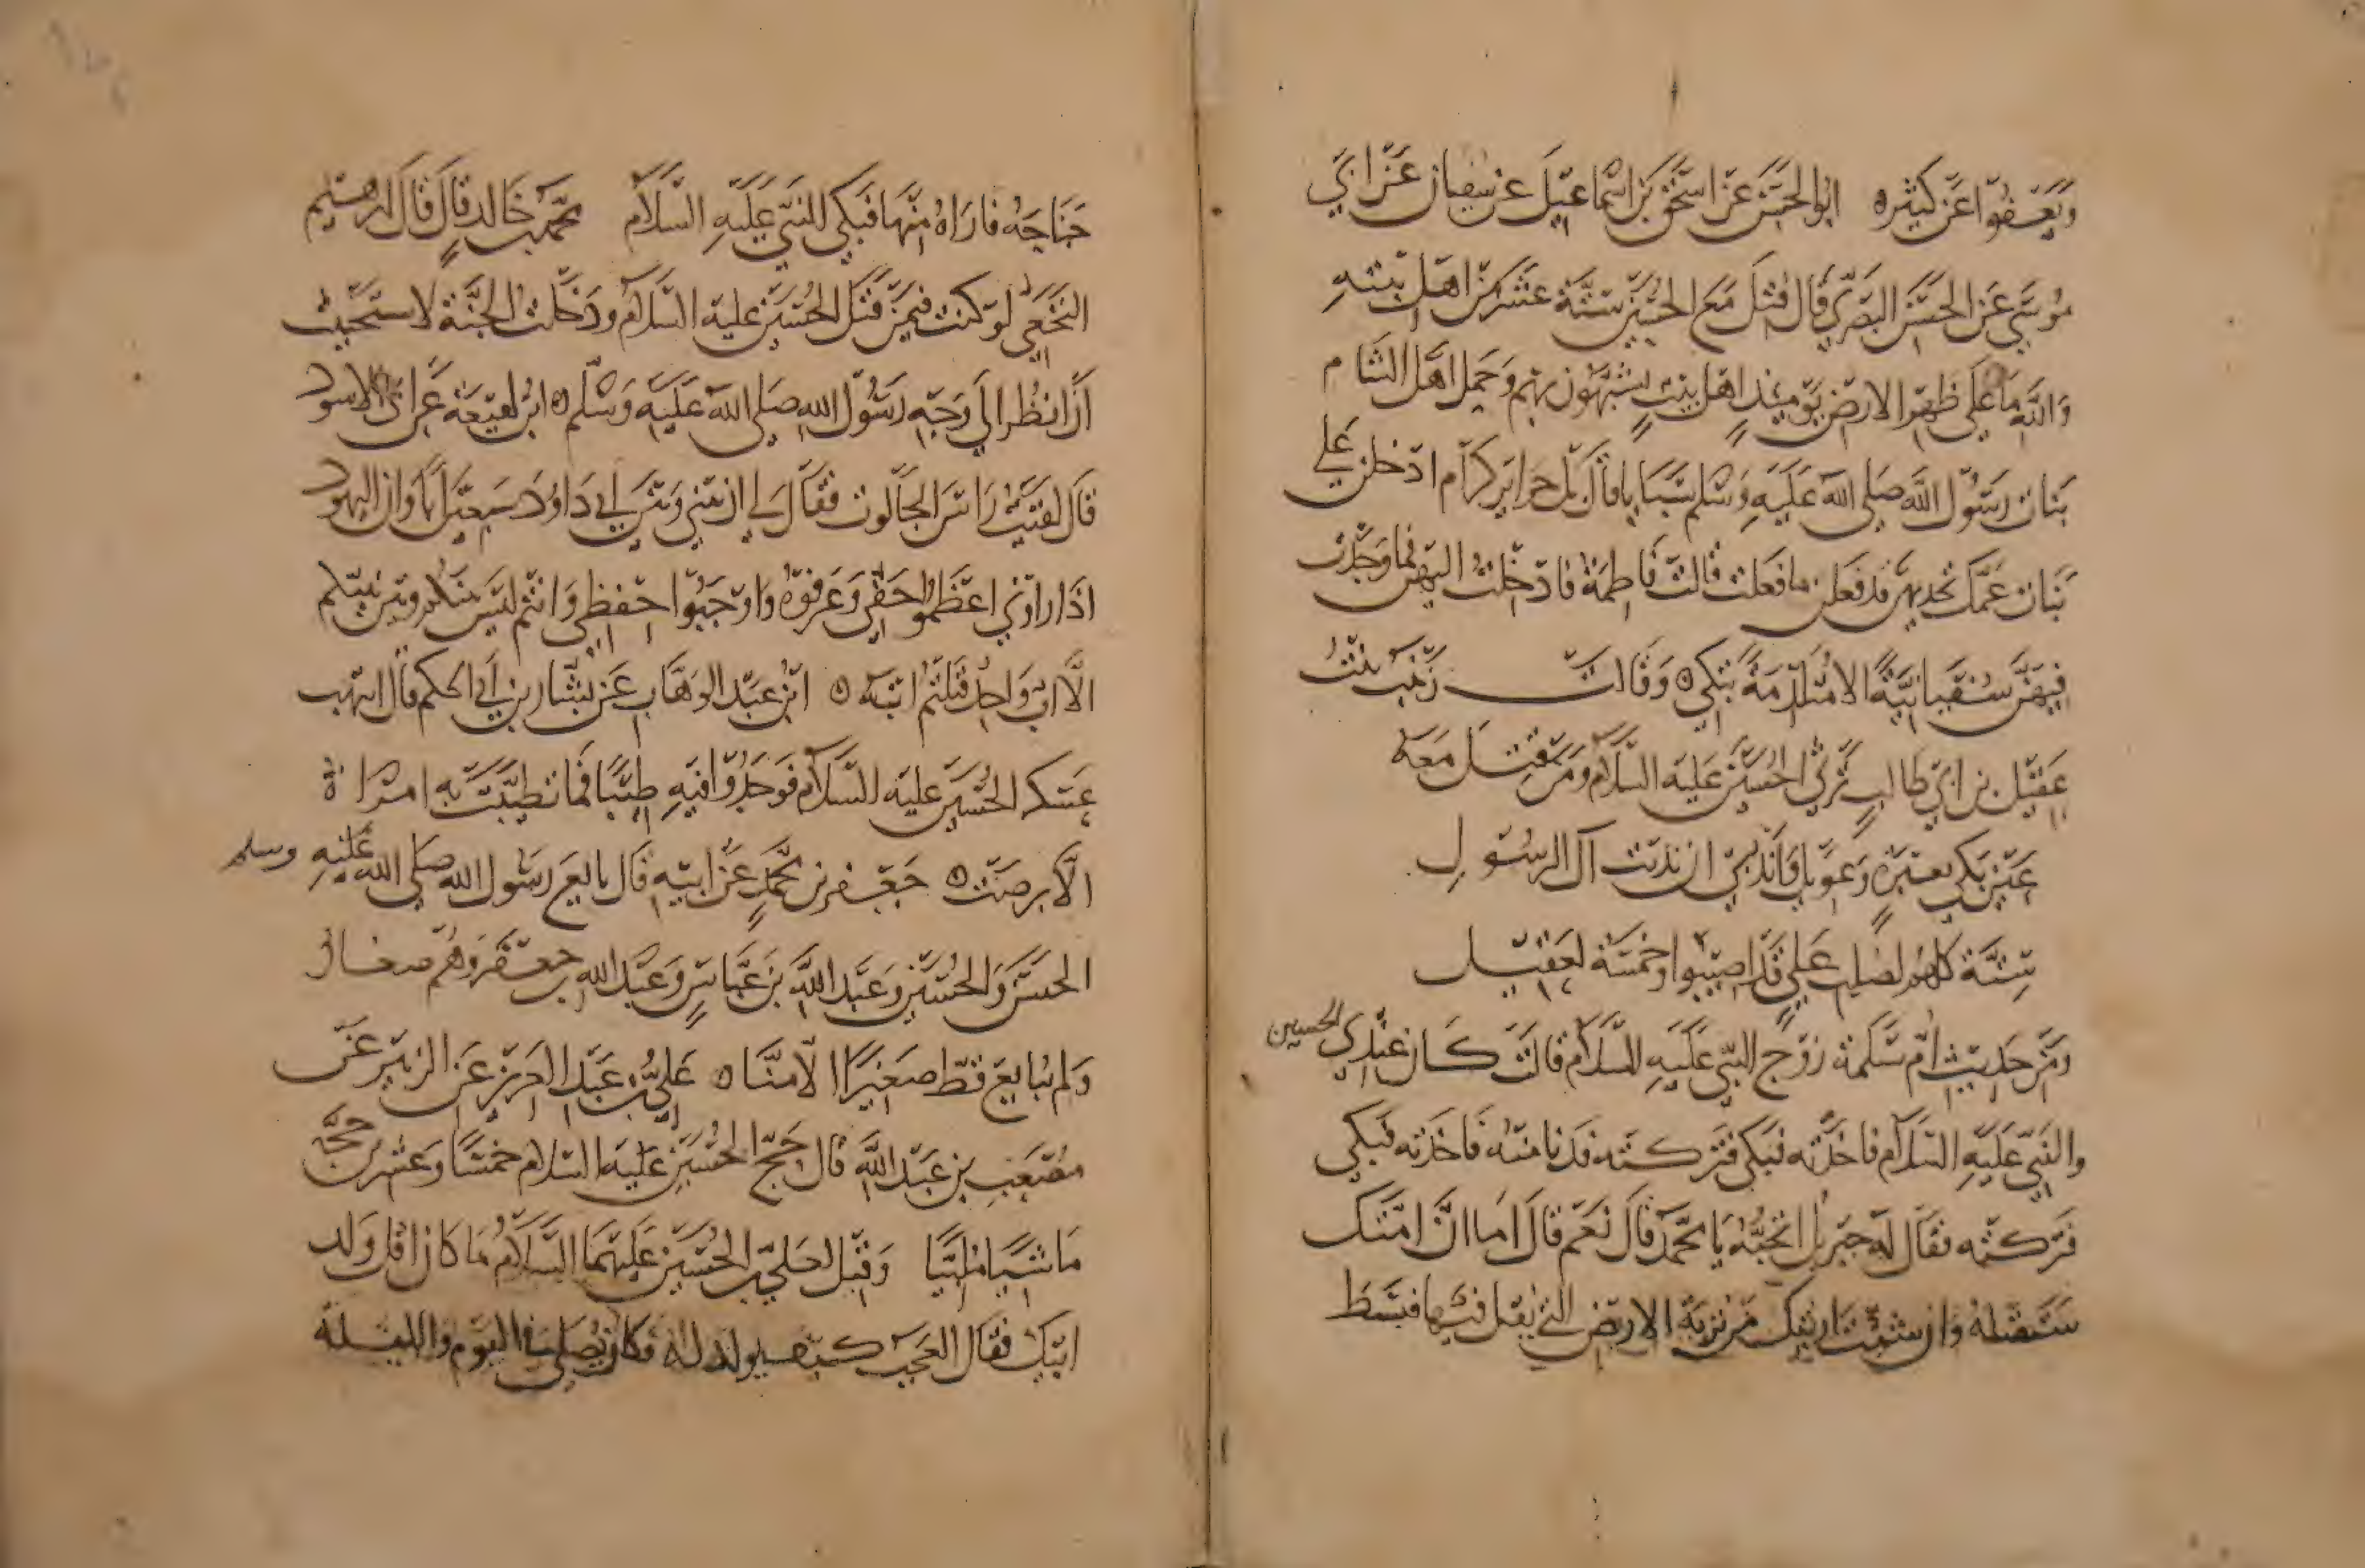 ويعفوا عن كثيره ابو الحسن عن اسحق بن اسماعيل عن سفيان عن ابي
موسى عن الحسن البصري قال قتل مع الحسين ستة عشر من اهل بيته
والله ما على ظهر الارض يومئذ اهل بيت يشبهون بهم وحمل اهل الشام
بنات رسول الله صلى الله عليه وسلم سبايا قال لهم حراير كرام ادخلن على
بنات عمك تجديهن قد فعلن ما فعلت قالت فاطمة فادخلت اليهن فما وجدت
فيهن سفيانية الا متلدمة تبكي ٥ وقالت زينب بنت
عقيل بن ابي طالب ترثي الحسين عليه السلام ومن قتل معه
عين بكي بعبرة وعويل واندبي ان ندبت آل الرسول
ستة كلهم لصلب علي قد اصيبوا وخمسة لعقيل
ومن حديث ام سلمة زوج النبي عليه السلام قالت كان عندي الحسين
والنبي عليه السلام فاخذته فبكى فتركته فدنا منه فاخذته فبكى
فتركته فقال له جبريل اتحبه يا محمد قال نعم قال اما ان امتك
ستقتله وان شئت اريتك من تربة الارض التي يقتل فيها فبسط
جناحه فاراه منها فبكى النبي عليه السلام محمد بن خالد قال قال ابرهيم
النخعي لو كنت فيمن قتل الحسين عليه السلام ودخلت الجنة لاستحييت
ان انظر الى وجه رسول الله صلى الله عليه وسلم ٥ ابن لهيعة عن ابي الاسود
قال لقيت راس الجالوت فقال لي ان بيني وبين داود سبعين ابا وان اليهود
اذا راوني اعظموا حقي وعرفوه واوجبوا حفظي وانتم ليس بينكم وبين نبيكم
الا اب واحد قتلتم ابنه ٥ ابن عبد الوهاب عن بشار بن ابي الحكم قال انتهب
عسكر الحسين عليه السلام فوجدوا فيه طيبا فما تطيبت به امراة
الا برصت ٥ جعفر بن محمد عن ابيه قال بايع رسول الله صلى الله عليه وسلم
الحسن والحسين وعبد الله بن عباس وعبد الله بن جعفر وهم صغار
ولم يبايع قط صغيرا الا منا ٥ علي بن عبد العزيز عن الزبير عن
مصعب بن عبد الله قال حج الحسين عليه السلام خمسا وعشرين حجة
ماشيا ملبيا وقيل لعلي بن الحسين عليهما السلام ما كان اقل ولد
ابيك فقال العجب كيف يولد له وكان يصلي في اليوم والليلة